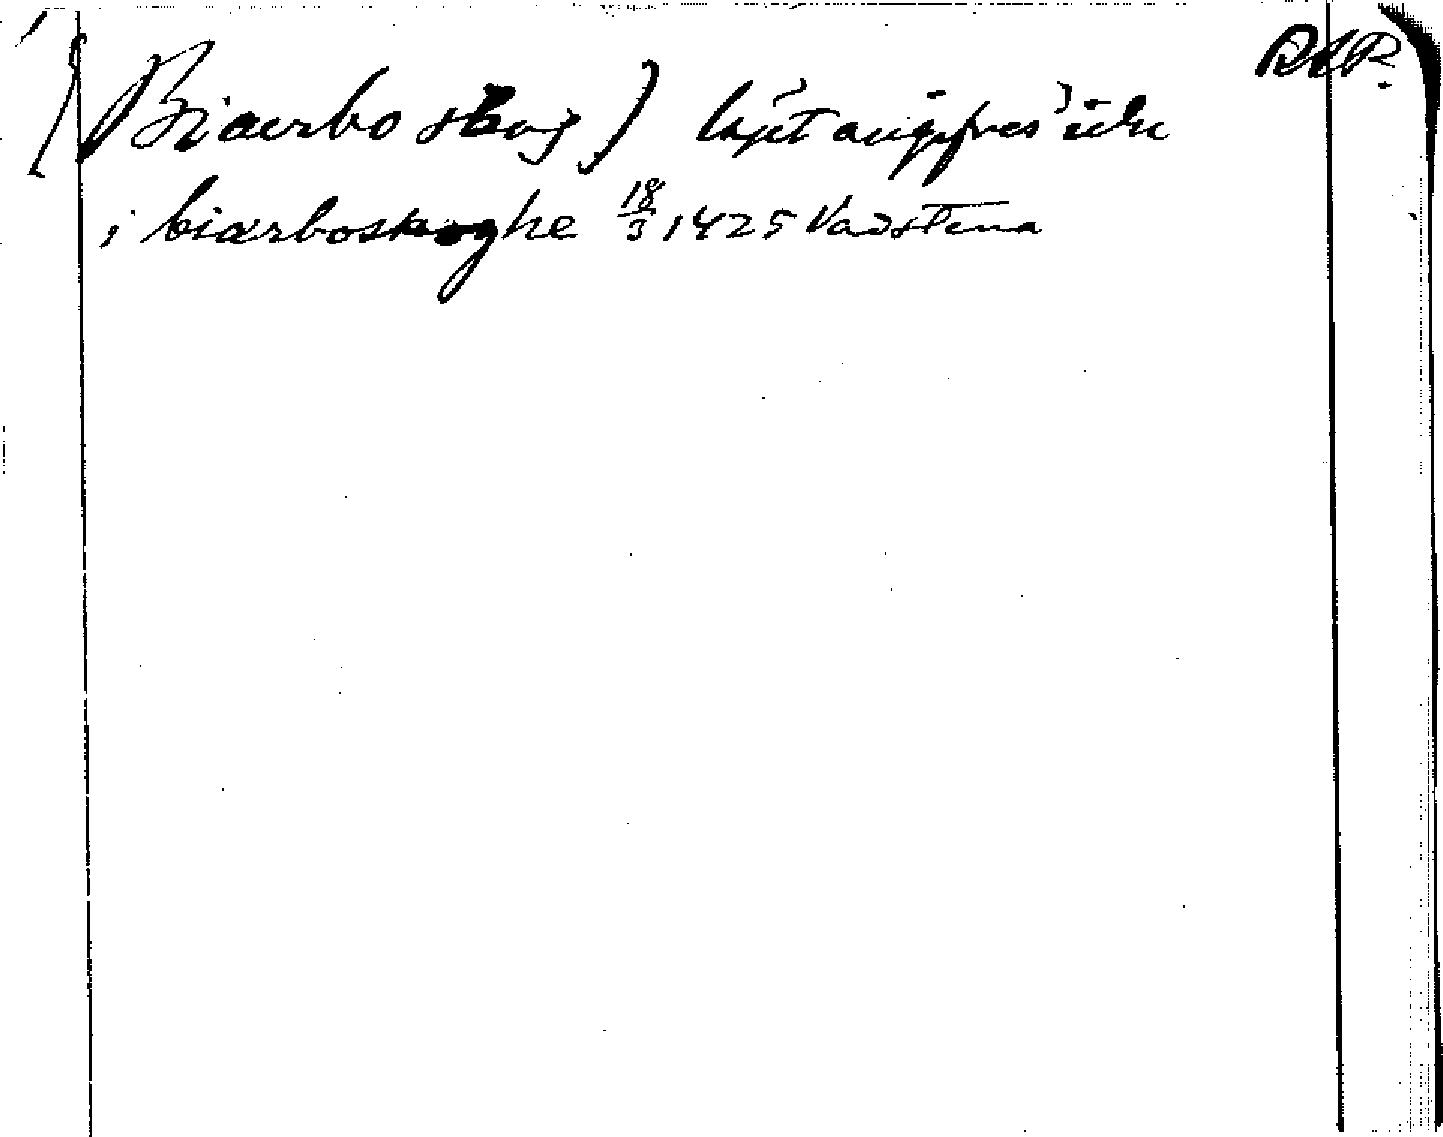 (Biærbo skog) läget angifves icke
i biærboskoghe 18/3 1425 Vadstena